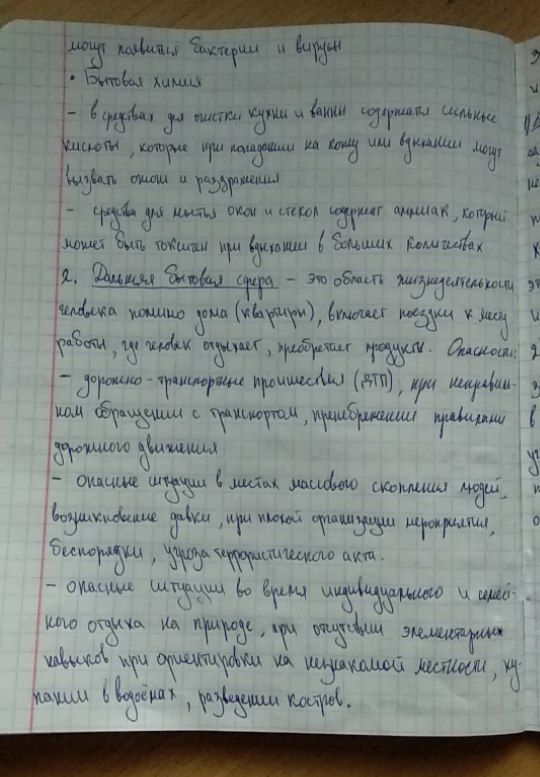 могут появиться бактерии и вирусы
• Бытовая химия
– в средствах для очистки кухни и ванны содержатся сильные
кислоты, которые при попадании на кожу или вдыхании могут
вызвать ожог и раздражения
– средства для мытья окон и стёкол содержат аммиак, который
может быть токсичен при вдыхании в больших количествах
2. Дальняя бытовая сфера – это область жизнедеятельности
человека помимо дома (квартиры), включает поездки к месту
работы, где человек отдыхает, преобретает продукты. Опасности:
– дорожно-транспортные происшествия (ДТП), при неправиль-
ном обращении с транспортом, пренебрежении правилами
дорожного движения
– опасные ситуации в местах массового скопления людей,
возникновение давки, при плохой организации мероприятия,
беспорядки, угроза террористического акта.
– опасные ситуации во время индивидуального и семей-
ного отдыха на природе, при отсутствии элементарных
навыков при ориентировки на незнакомой местности, ку-
пании в водоёмах, разведении костров.